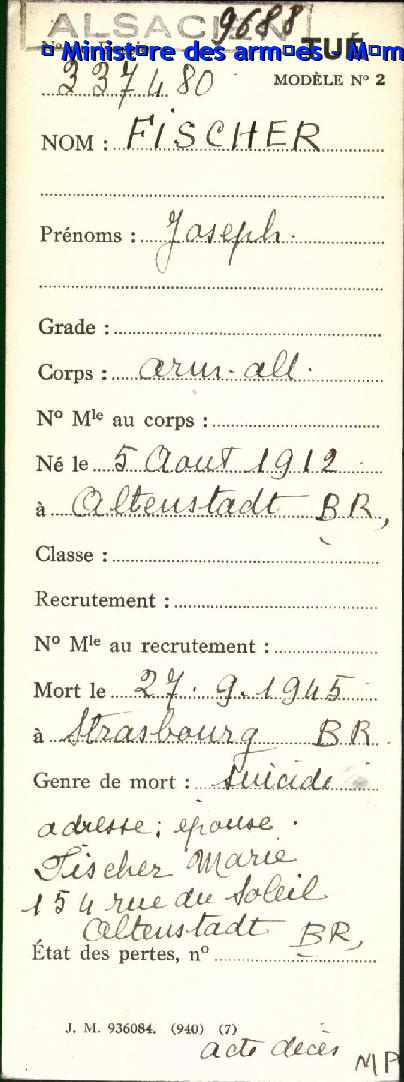 ALSACIEN
9688
TUÉ
337480
MODÈLE N° 2
NOM : FISCHER
Prénoms : Joseph.
Grade :
Corps : arm. all.
N° Mle au corps :
Né le 5 Aout 1912
à Altenstadt BR,
Classe :
Recrutement :
N° Mle au recrutement :
Mort le 27. 9. 1945
à Strasbourg BR
Genre de mort : suicide
adresse ; épouse .
Fischer Marie
154 rue du Soleil
Altenstadt BR,
État des pertes, n°
J. M. 936084. (940) (7)
acte décès
MP